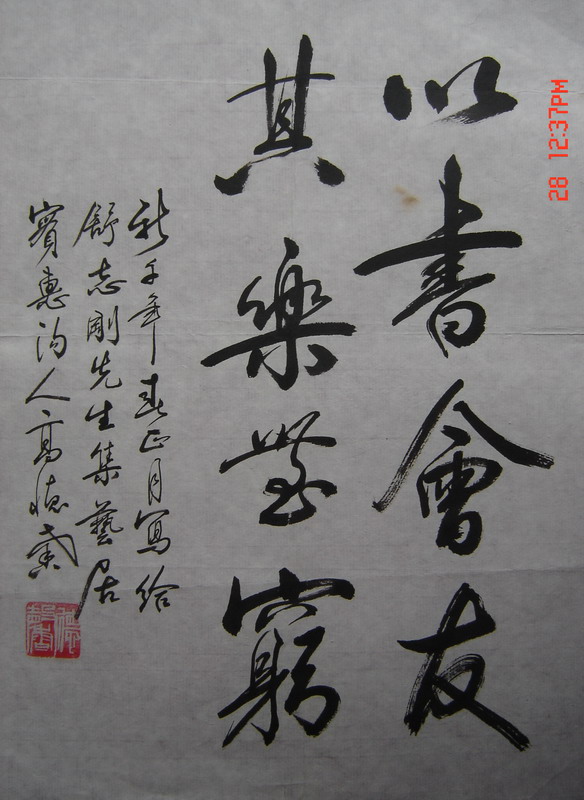 以書會友
其樂無窮
新千年春正月寫給
舒志剛先生集藝居
賓惠沟人高德馨
28 12:37PM